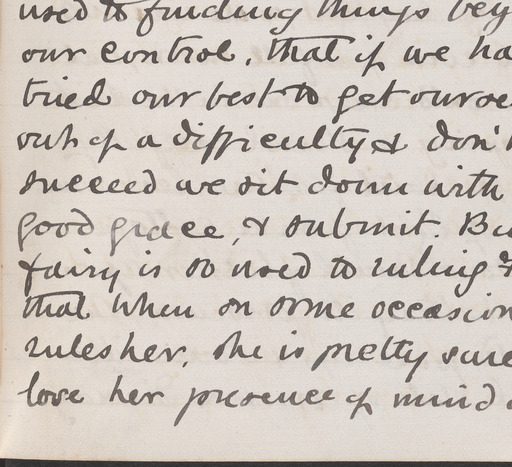 used to finding things bey
our control, that if we ha
tried our best to get ourse
out of a difficulty & don't
succeed we sit down with
good grace, & submit. Bu
fairy is so used to ruling &
that when on some occasion
rules her, she is pretty sure
lose her presence of mind